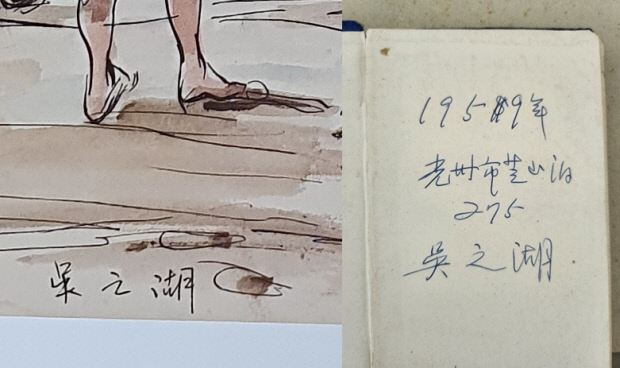 吳之湖
1959年
光州市芝山洞
275
吳之湖